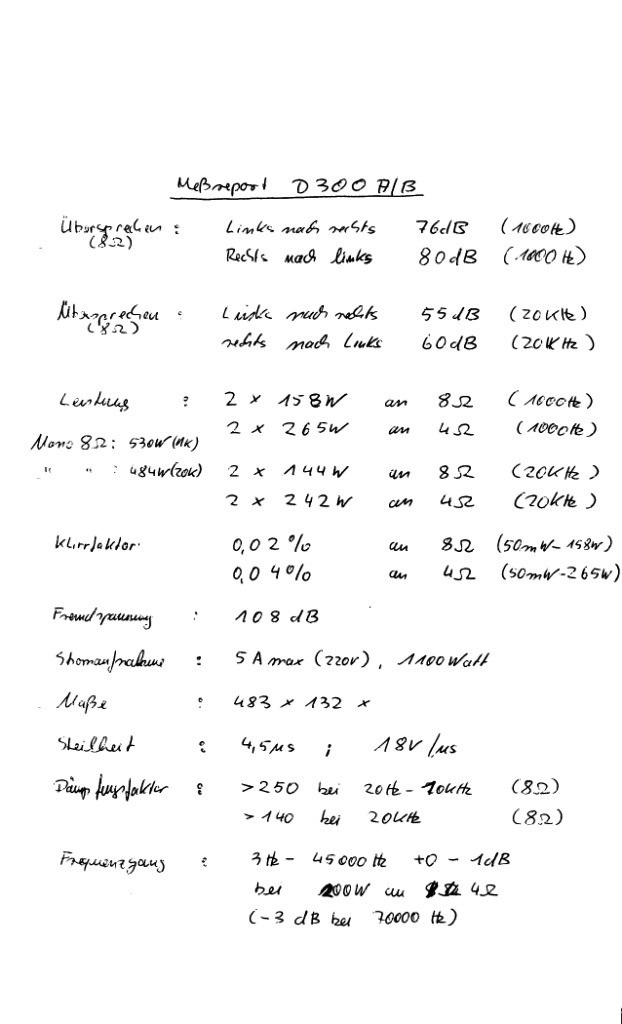 Meßreport D300 A/B
Übersprechen : Links nach rechts 76dB (1000Hz)
(8Ω) Rechts nach links 80dB (1000Hz)
Übersprechen : Links nach rechts 55dB (20KHz)
(8Ω) rechts nach Links 60dB (20KHz)
Leistung : 2 x 158W an 8Ω (1000Hz)
2 x 265W an 4Ω (1000Hz)
Mono 8Ω: 530W (1K)
" " : 484W (20K) 2 x 144W an 8Ω (20KHz)
2 x 242W an 4Ω (20KHz)
Klirrfaktor 0,02% an 8Ω (50mW-158W)
0,04% an 4Ω (50mW-265W)
Fremdspannung : 108 dB
Stromaufnahme : 5A max (220V), 1100Watt
Maße : 483 x 132 x
Steilheit : 4,5µs ; 18V/µs
Dämpfungsfaktor : >250 bei 20Hz-10KHz (8Ω)
>140 bei 20KHz (8Ω)
Frequenzgang : 3Hz - 45000Hz +0 - 1dB
bei 200W an 4Ω
(-3 dB bei 70000 Hz)